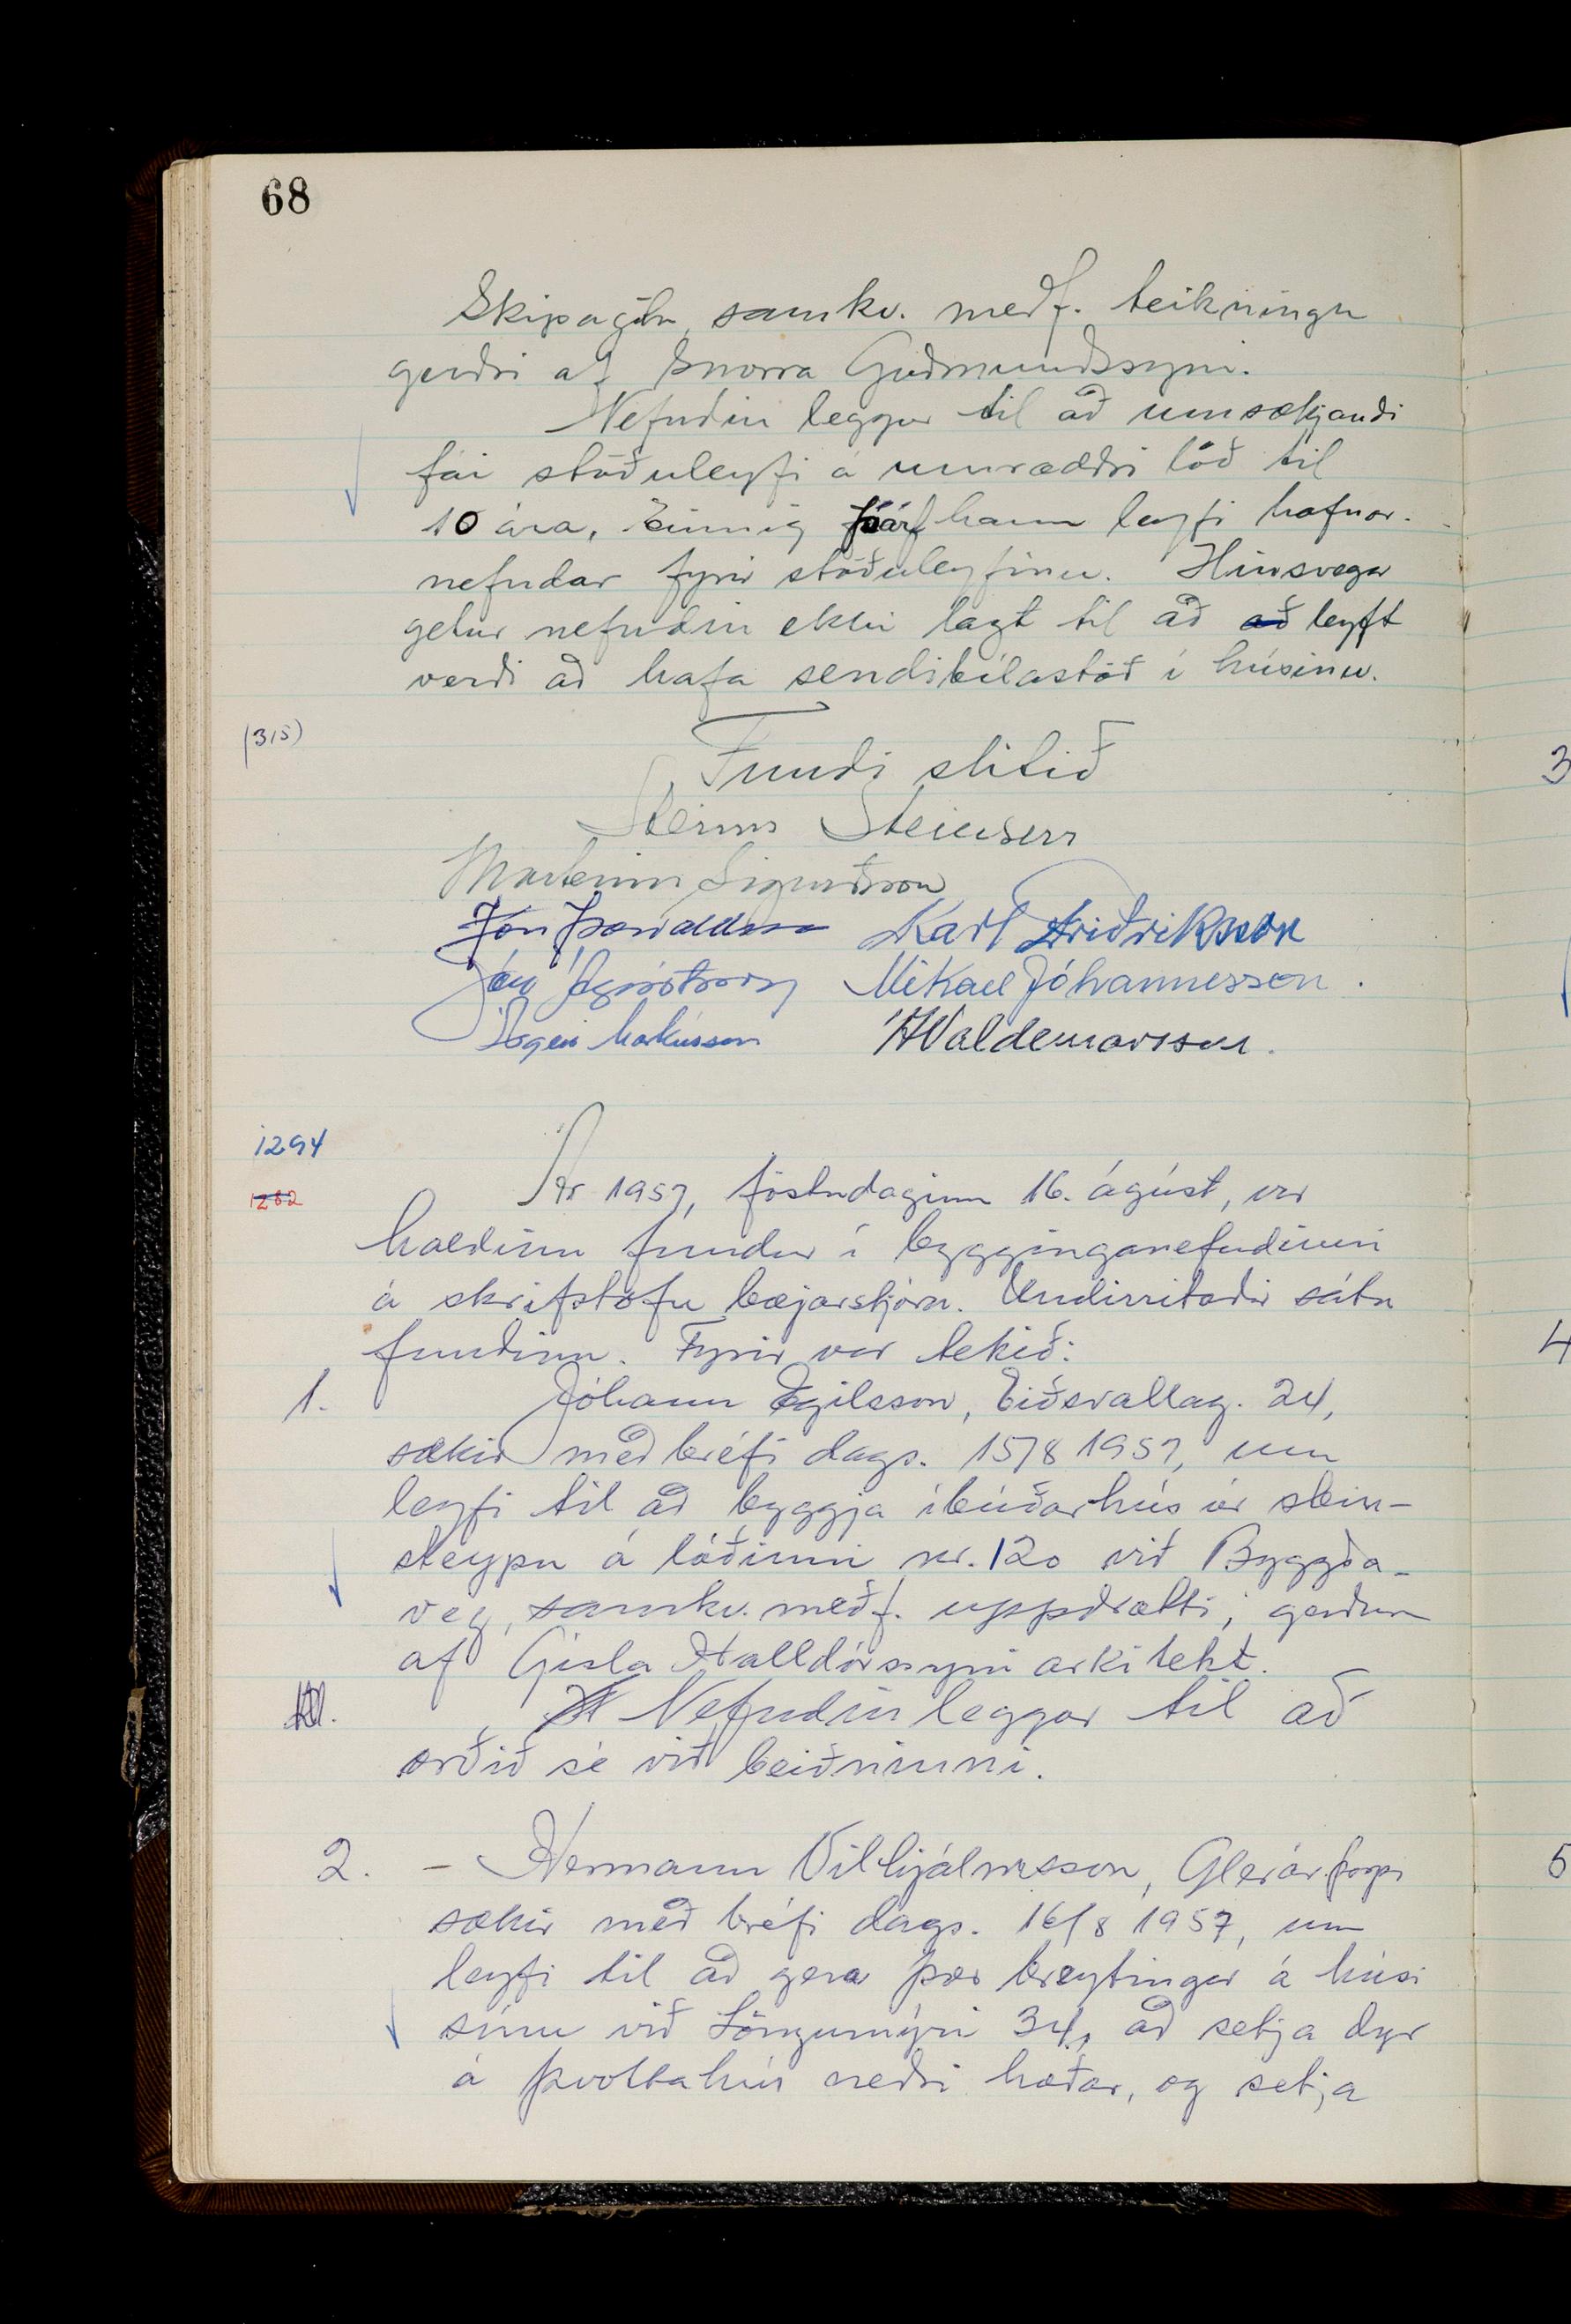 68
Skipagötu, samkv. meðf. teikningu
gerðri af Snorra Guðmundssyni.
Nefndin leggur til að umsækjandi
fái stöðuleyfi á umræddri lóð til
10 ára, Einnig þarf hann leyfi hafnar-
nefndar fyrir stöðuleyfinu. Hinsvegar
getur nefndin ekki lagt til að að leyft
verði að hafa sendibílastöð í húsinu.
(315)
Fundi slitið
Steinn Steinsen
Marteinn Sigurðsson
Jón Þorvaldsson Karl Friðriksson
Jón Mikael Jóhannesson.
Ásgeir Markússon HValdemarsson.
1294
1282
Ár 1957, föstudaginn 16. ágúst, var
haldinn fundur í bygginganefndinni
á skrifstofu bæjarstjóra. Undirritaðir sátu
fundinn. Fyrir var tekið:
1. Jóhann Egilsson, Eiðsvallag. 24,
sækir með bréfi dags. 15/8 1957, um
leyfi til að byggja íbúðarhús úr stein-
steypu á lóðinni nr. 120 við Byggða-
veg, samkv. meðf. uppdrætti, gerðum
af Gísla Halldórssyni arkitekt.
Nefndin leggur til að
orðið sé við beiðninni.
2. - Hermann Vilhjálmsson, Glerárþorpi
sækir með bréfi dags. 16/8 1957, um
leyfi til að gera þær breytingar á húsi
sínu við Löngumýri 34, að setja dyr
á þvottahús neðri hæðar, og setja
3
4
5